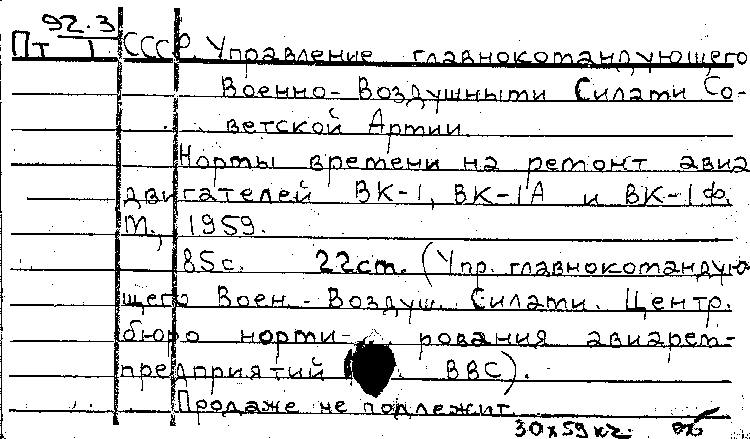 92.3
Пт 1 СССР. Управление главнокомандующего
Военно-Воздушными Силами Со-
ветской Армии.
Нормы времени на ремонт авиа
двигателей ВК-1, ВК-1А и ВК-1Ф.
М., 1959.
85с. 22см. (Упр. главнокомандую
щего Воен.-Воздуш. Силами. Центр.
бюро норми- рования авиарем-
предприятий ВВС).
Продаже не подлежит
30х59кч.